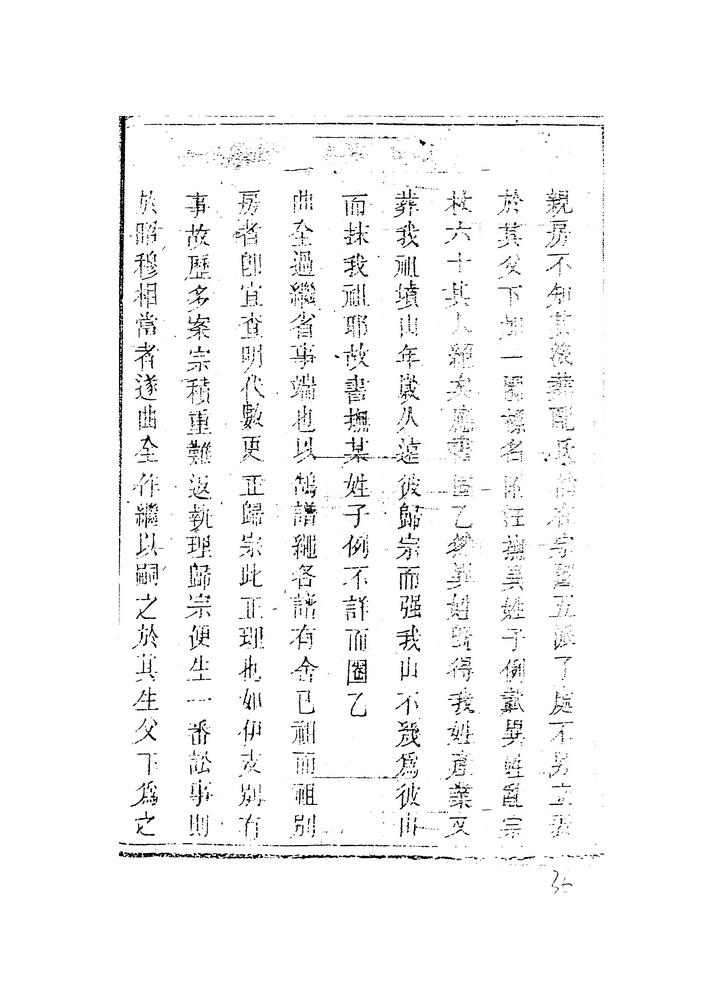 親房不知其後葬亂宗五派了處不另立
於其父下一名撫異姓子例試異姓亂宗
杖六十其人乙然異姓得我姓產業又
葬我祖墳山年歲久遠彼歸宗而强我山不幾為彼山
而抹我祖耶故書撫某姓子例不詳而圈乙
一曲全過繼省事端也以鵠譜繩各譜有舍已祖而祖別
房者卽宜查明代數更正歸宗此正理也如伊支別有
事故歷多案宗積重難返執理歸宗便生一番訟事則
於昭穆相當者遂曲全作繼以嗣之於其生父下為之
36